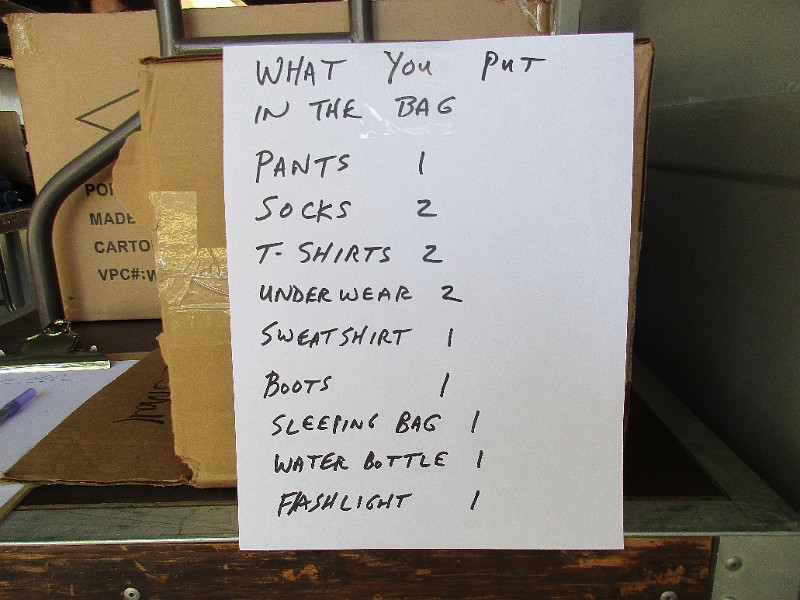 WHAT YOU PUT
IN THE BAG
PANTS 1
SOCKS 2
T-SHIRTS 2
UNDERWEAR 2
SWEATSHIRT 1
BOOTS 1
SLEEPING BAG 1
WATER BOTTLE 1
FLASHLIGHT 1
MADE
VPC#:W